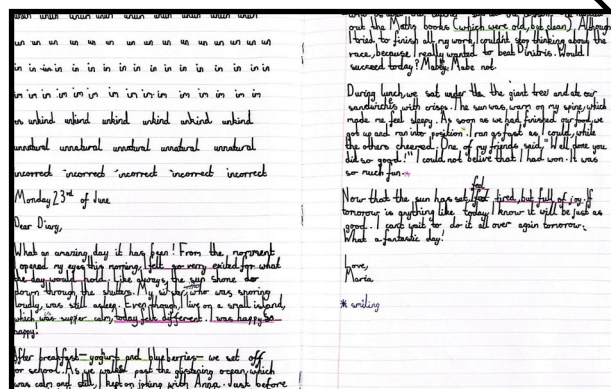 un un un un un un un un un un un un un
in in in in in in in in in in in in in
in in in in in in im in in in in
unkind unkind unkind unkind unkind
unnatural unnatural unnatural unnatural
incorrect incorrect incorrect incorrect
Monday 23rd of June
Dear Diary,
What an amazing day it has been! From the
opened my eyes this morning, felt so very exited for what
the day would hold. Like always, the sun shone
down through the shutters. My sister was snoring
loudly, was still asleep. Even though I live on a small island,
which was supper calm, today felt different. I was happy so
happy!
After breakfast - yogurts and blueberries - we set off
for school. As we walked past the glistening ocean, which
was calm and still, I kept on joking with Anna. Just before
out the Maths books (which were old, but clean). Although
I tried to finish all my work, couldn't stop thinking about the
race, because I really wanted to beat Dimitris. Would I
succeed today? Mabby. Mabe not.
During lunch, we sat under the the giant tree and ate our
sandwiches with crisps. The sun was warm on my spine, which
made me feel sleepy. As soon as we had finished our food, we
got up and ran into position. I ran as fast as I could, while
the others cheered. One of my friends said, "Well done you
did so good!" I could not belive that I had won. It was
so much fun.*
feel
Now that the sun has set, I feel tired, but full of joy. If
tomorow is anything like today I know it will be just as
good. I cant wait to do it all over again tomorow.
What a fantastic day!
Love,
Maria
* smiling